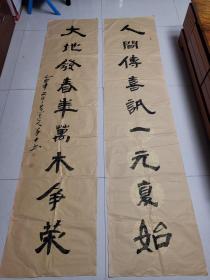 人間傳喜訊一元夏始
大地發春華萬木争荣